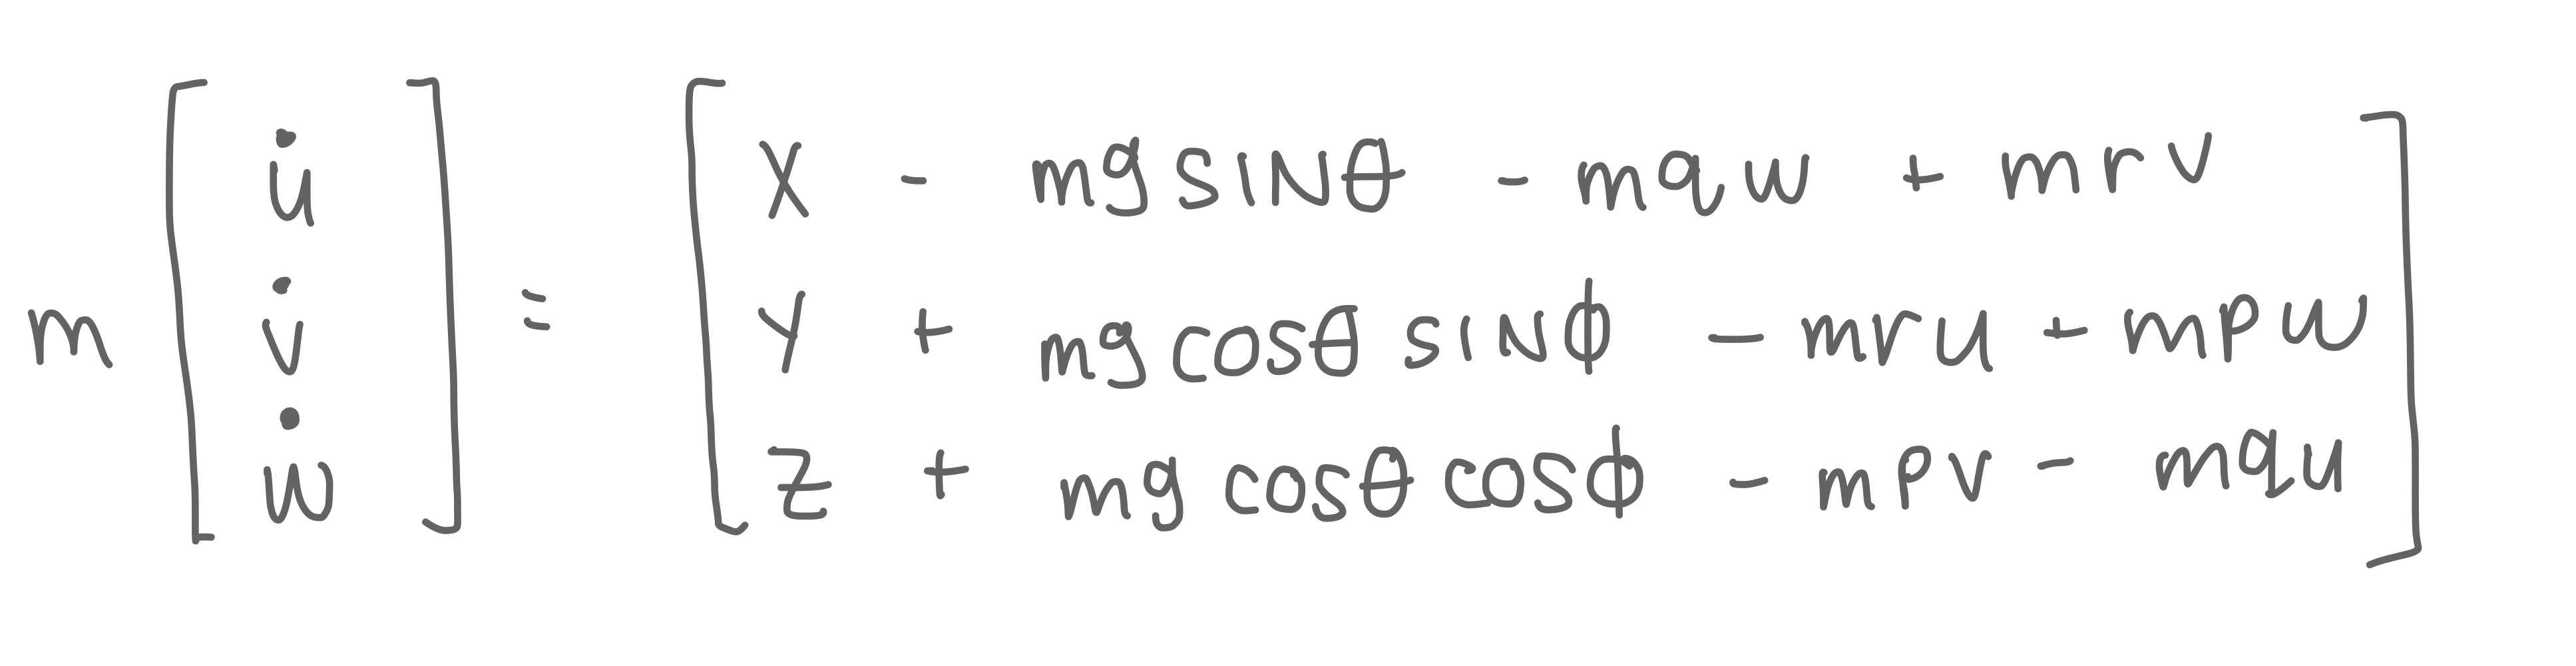 m [ u̇ ] = [ X - mg SINθ - mqw + mrv ]
[ v̇ ] [ Y + mg cosθ SINϕ - mru + mpw ]
[ ẇ ] [ Z + mg cosθ cosϕ - mpv - mqu ]